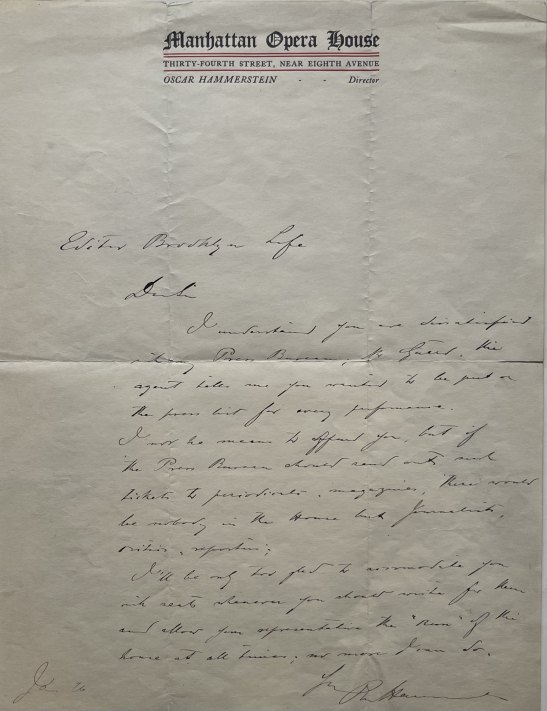 Manhattan Opera House
THIRTY-FOURTH STREET, NEAR EIGHTH AVENUE
OSCAR HAMMERSTEIN - - Director
Editor Brooklyn Life
Dear Sir
I understand you are dissatisfied
with my Press Bureau, the
agent tells me you wanted to be put on
the press list for every performance.
I nor he means to offend you, but if
the Press Bureau should send out such
tickets to periodicals, magazines, there would
be nobody in the House but Journalists,
critics, reporters;
I'll be only too glad to accomodate you
with seats whenever you should write for them
and allow your representative the "Run" of the
house at all times; no more I can do.